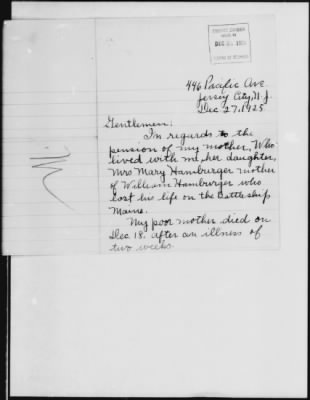 DEC 29 1925
446 Pacific Ave.
Jersey City, N.J.
Dec 27, 1925
Gentlemen:
In regards to the
pension of my mother, Who
lived with me, her daughter,
Mrs Mary Hamburger mother
of William Hamburger who
lost his life on the Battleship
Maine.
My poor mother died on
Dec 18. after an illness of
two weeks